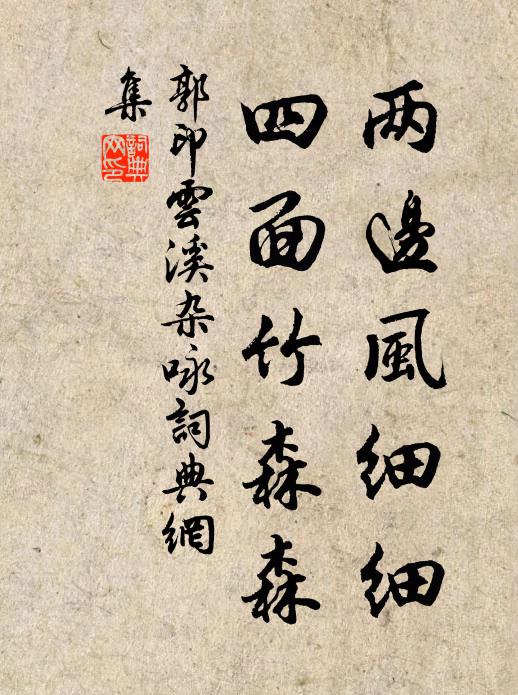 两邊風細細
四面竹森森
郭印雲溪杂咏詞典網
集
詞典
网印